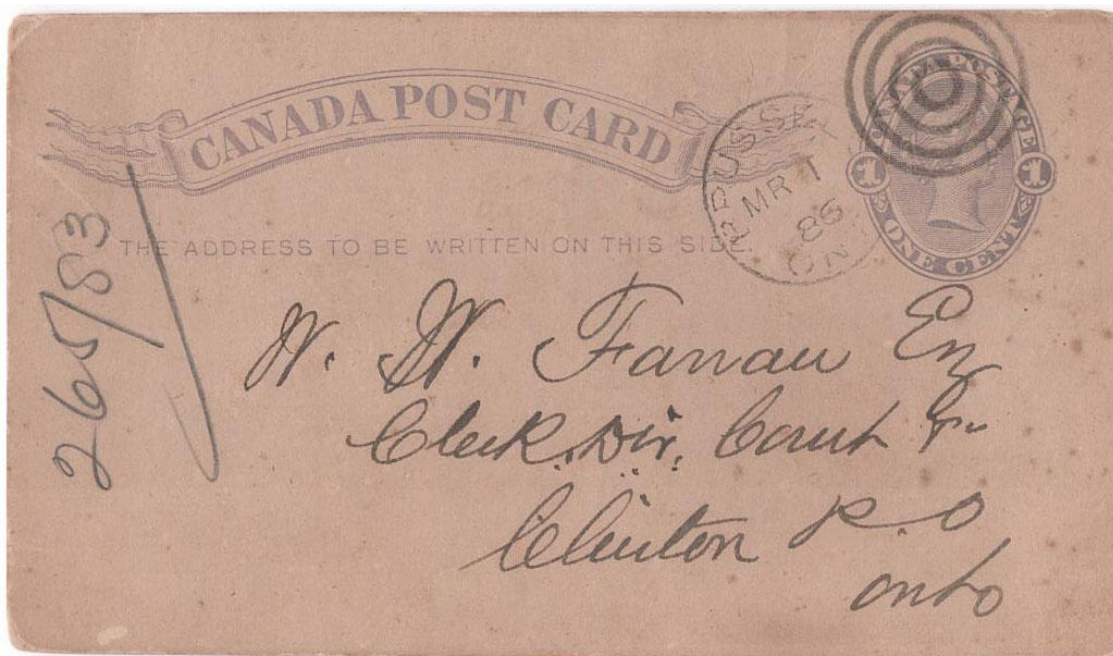 CANADA POST CARD
CANADA POSTAGE
1 1
ONE CENT
BRUSSEL
MR 1
86
ON
THE ADDRESS TO BE WRITTEN ON THIS SIDE.
265/83
W. W. Farran
Clerk Div. Court
Clinton P.O
Onto